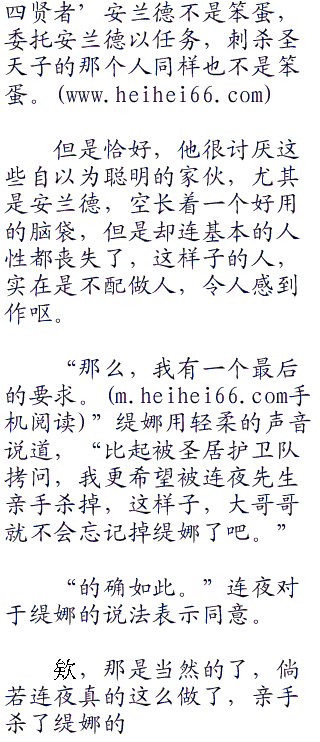 四贤者’安兰德不是笨蛋，
委托安兰德以任务，刺杀圣
天子的那个人同样也不是笨
蛋。(www.heihei66.com)
但是恰好，他很讨厌这
些自以为聪明的家伙，尤其
是安兰德，空长着一个好用
的脑袋，但是却连基本的人
性都丧失了，这样子的人，
实在是不配做人，令人感到
作呕。
“那么，我有一个最后
的要求。(m.heihei66.com手
机阅读)”缇娜用轻柔的声音
说道，“比起被圣居护卫队
拷问，我更希望被连夜先生
亲手杀掉，这样子，大哥哥
就不会忘记掉缇娜了吧。”
“的确如此。”连夜对
于缇娜的说法表示同意。
欸，那是当然的了，倘
若连夜真的这么做了，亲手
杀了缇娜的